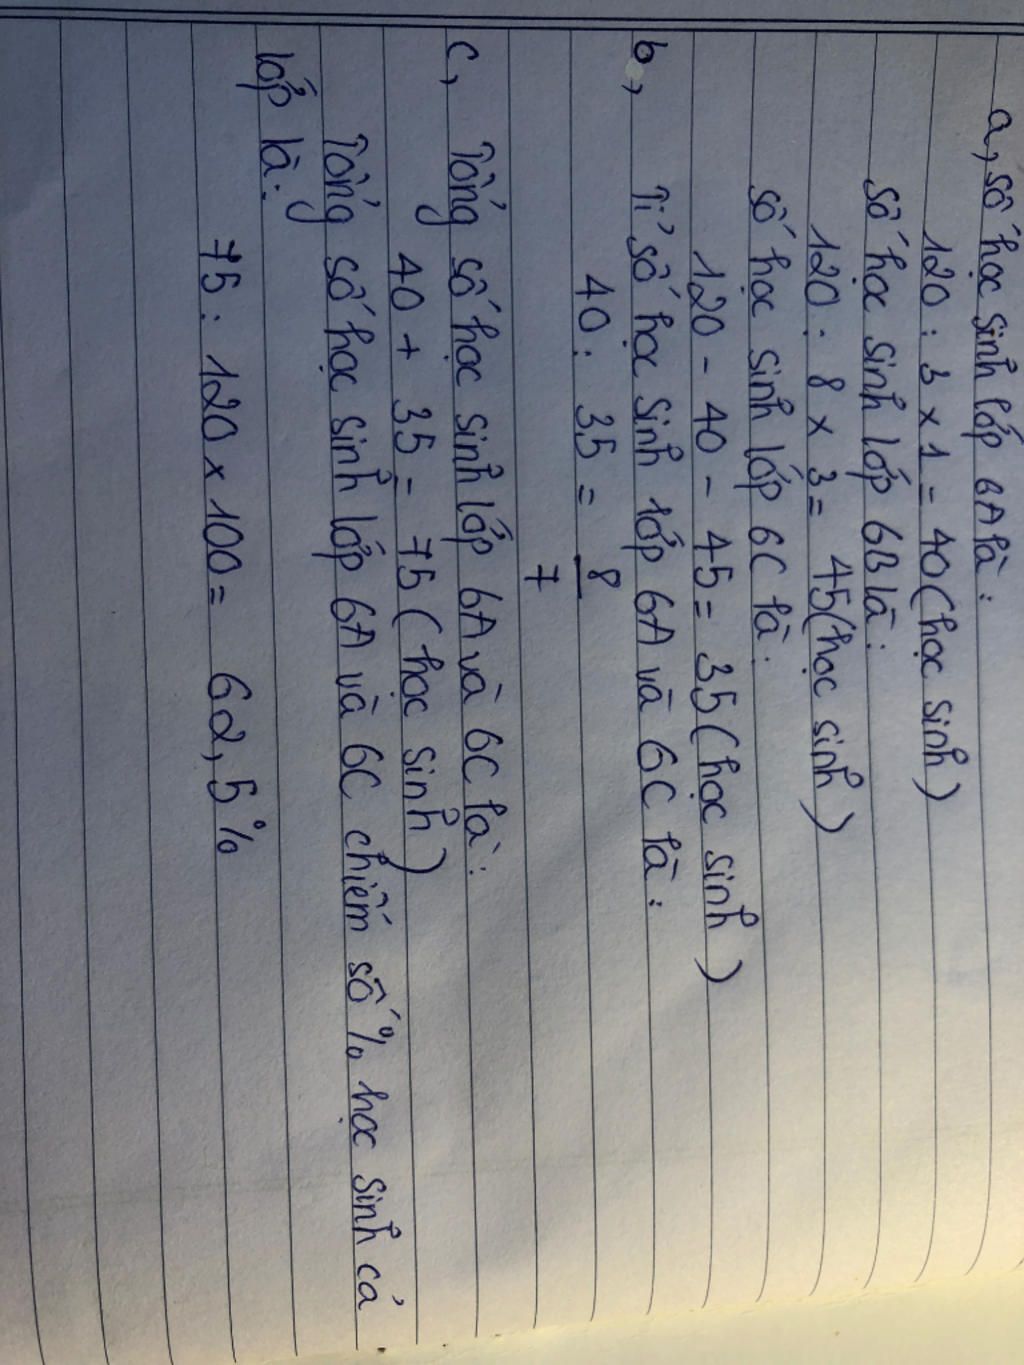 a, số học sinh lớp 6A là:
120 : 3 x 1 = 40 (học sinh)
số học sinh lớp 6B là:
120 : 8 x 3 = 45 (học sinh)
số học sinh lớp 6C là:
120 - 40 - 45 = 35 (học sinh)
b, Tỉ số học sinh lớp 6A và 6C là:
40 : 35 = 8
7
c, Tổng số học sinh lớp 6A và 6C là:
40 + 35 = 75 (học sinh)
Tổng số học sinh lớp 6A và 6C chiếm số % học sinh cả
lớp là:
75 : 120 x 100 = 62,5%